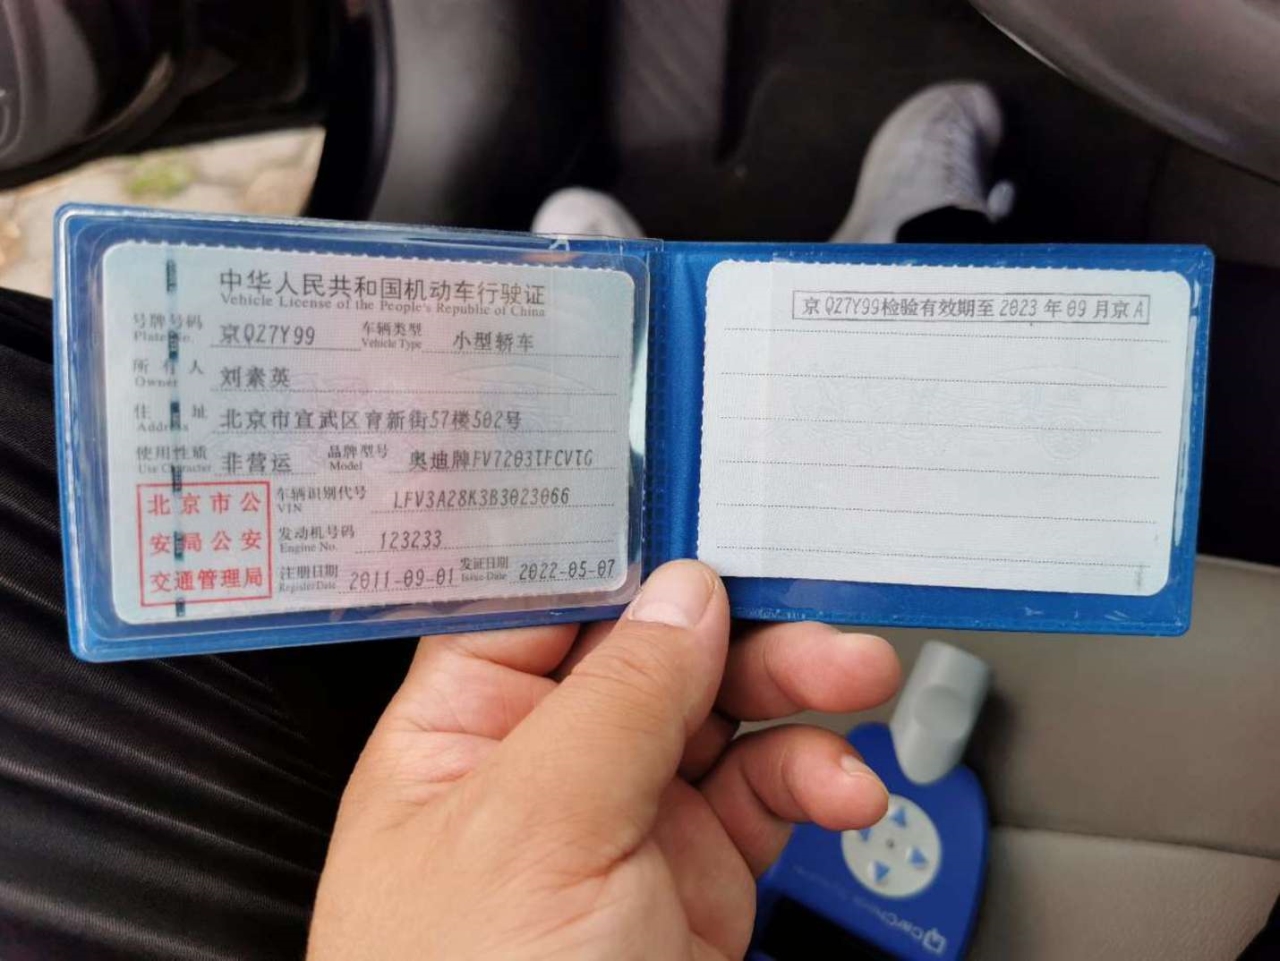 中华人民共和国机动车行驶证
Vehicle License of the People's Republic of China
号牌号码 京QZ7Y99 车辆类型 小型轿车
Plate No. Vehicle Type
所有人 刘素英
Owner
住址 北京市宣武区育新街57楼502号
Address
使用性质 非营运 品牌型号 奥迪牌FV7203TFCVTG
Use Character Model
北京市公
安局公安
交通管理局
车辆识别代号 LFV3A28K3B3023066
VIN
发动机号码 123233
Engine No.
注册日期 2011-09-01 发证日期 2022-05-07
Register Date Issue Date
京QZ7Y99检验有效期至2023年09月京A